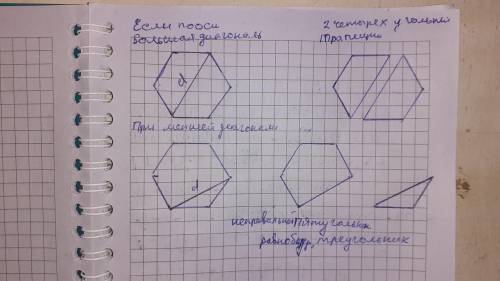 Если пооси
большая диагональ
2 четырех угольней
трапеции
d
При меншей диагонали
d
неправельный пятиугольник
равнобедр, треугольник